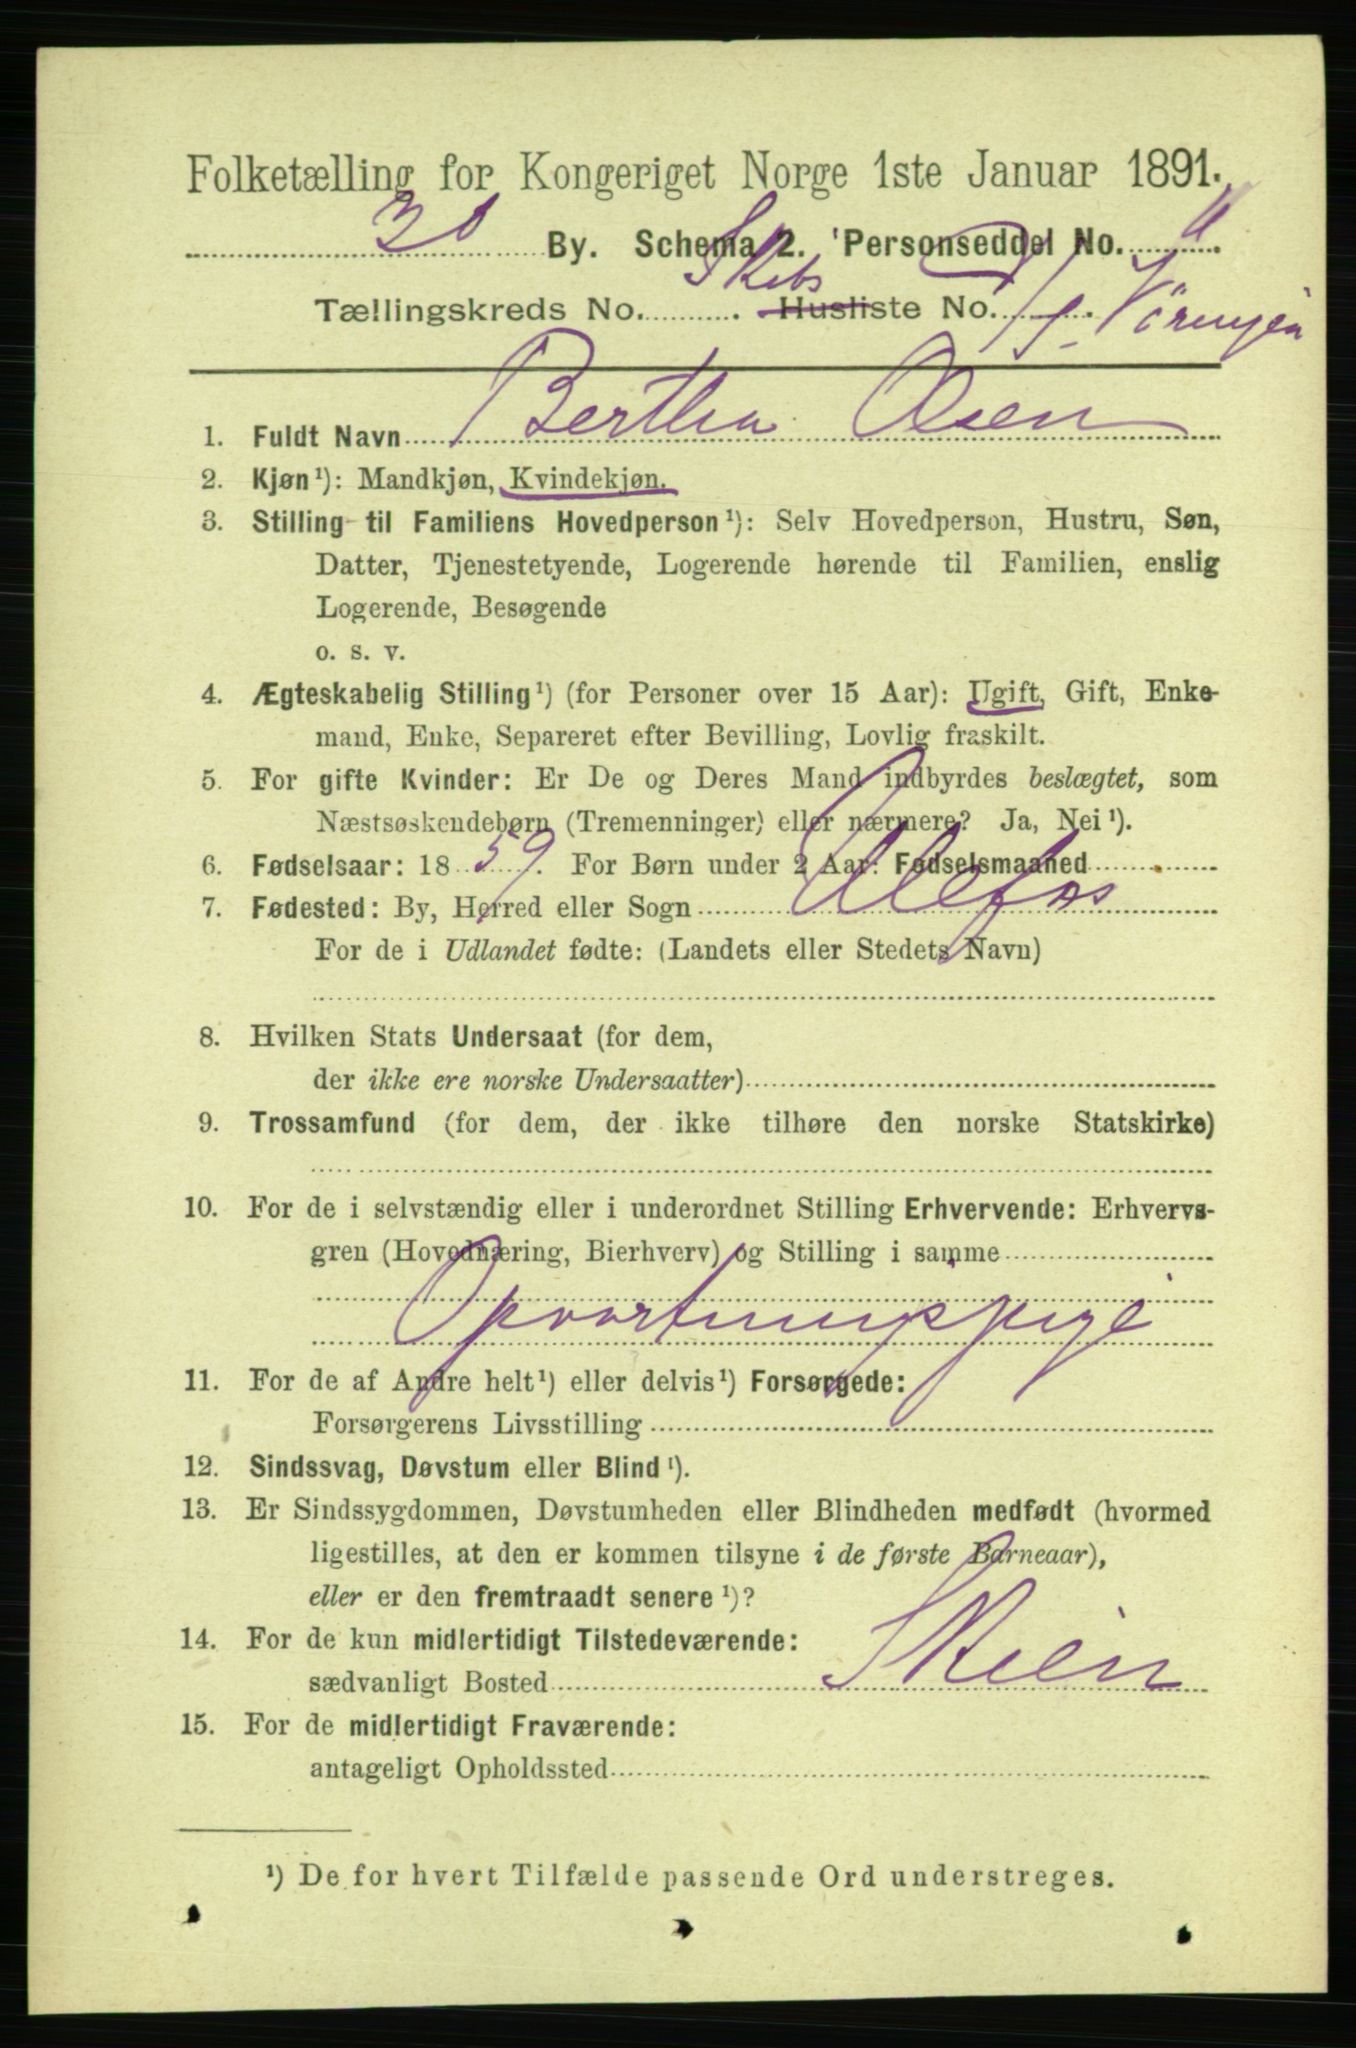 Folketælling for Kongeriget Norge 1ste Januar 1891.
By. Schema 2. Personseddel No.
Skibs
Tællingskreds No. Husliste No.
1. Fuldt Navn Bertha Olsen
2. Kjøn¹): Mandkjøn, Kvindekjøn.
3. Stilling til Familiens Hovedperson¹): Selv Hovedperson, Hustru, Søn,
Datter, Tjenestetyende, Logerende hørende til Familien, enslig
Logerende, Besøgende
o. s. v.
4. Ægteskabelig Stilling¹) (for Personer over 15 Aar): Ugift, Gift, Enke-
mand, Enke, Separeret efter Bevilling, Lovlig fraskilt.
5. For gifte Kvinder: Er De og Deres Mand indbyrdes beslægtet, som
Næstsøskendebørn (Tremenninger) eller nærmere? Ja, Nei¹).
6. Fødselsaar: 1859. For Børn under 2 Aar: Fødselsmaaned
7. Fødested: By, Herred eller Sogn Ulefos
For de i Udlandet fødte: (Landets eller Stedets Navn)
8. Hvilken Stats Undersaat (for dem,
der ikke ere norske Undersaatter)
9. Trossamfund (for dem, der ikke tilhøre den norske Statskirke)
10. For de i selvstændig eller i underordnet Stilling Erhvervende: Erhvervs-
gren (Hovednæring, Bierhverv) og Stilling i samme
Opvartningspige
11. For de af Andre helt¹) eller delvis¹) Forsørgede:
Forsørgerens Livsstilling
12. Sindssvag, Døvstum eller Blind¹).
13. Er Sindssygdommen, Døvstumheden eller Blindheden medfødt (hvormed
ligestilles, at den er kommen tilsyne i de første Barneaar),
eller er den fremtraadt senere¹)?
14. For de kun midlertidigt Tilstedeværende:
sædvanligt Bosted Skien
15. For de midlertidigt Fraværende:
antageligt Opholdssted
¹) De for hvert Tilfælde passende Ord understreges.